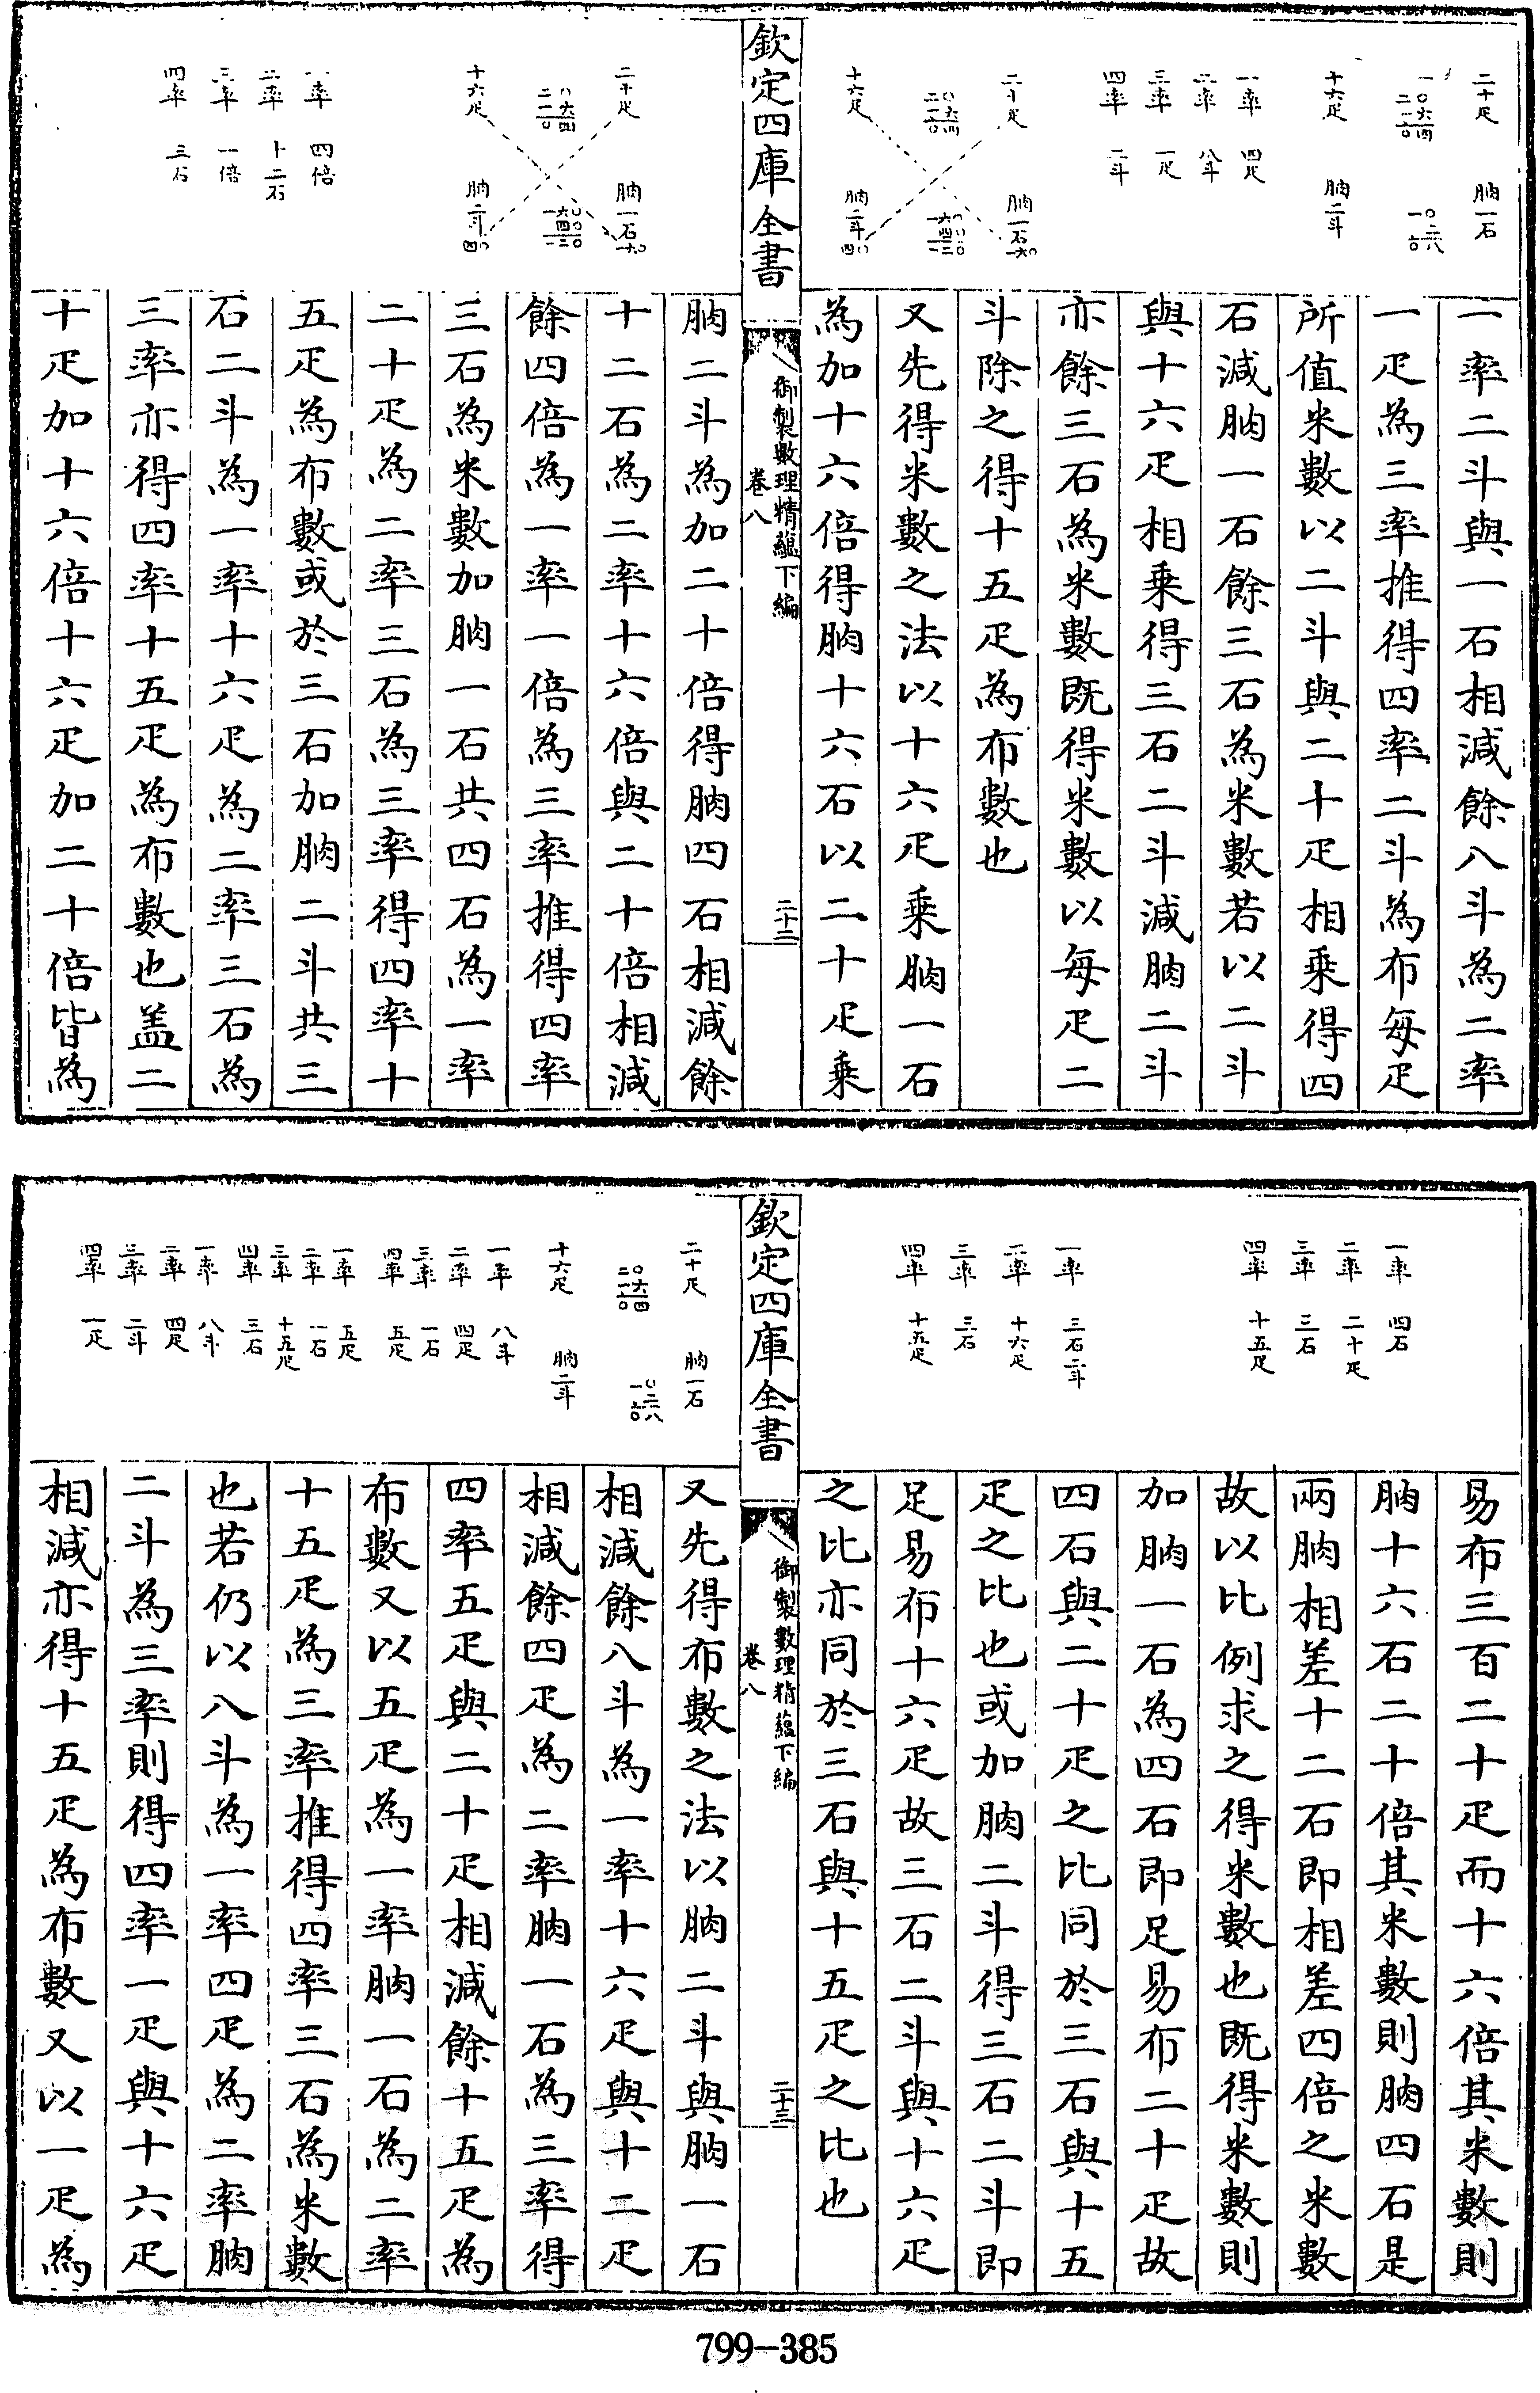 二十疋 朒一石
十六疋 朒二斗
一率 四疋
二率 八斗
三率 一疋
四率 二斗
二十疋 朒一石
十六疋 朒二斗
一率二斗與一石相減餘八斗為二率
一疋為三率推得四率二斗為布每疋
所值米數以二斗與二十疋相乘得四
石減朒一石餘三石為米數若以二斗
與十六疋相乘得三石二斗減朒二斗
亦餘三石為米數既得米數以每疋二
斗除之得十五疋為布數也
又先得米數之法以十六疋乘朒一石
為加十六倍得朒十六石以二十疋乘
欽定四庫全書
御製數理精蘊下編
卷八
二十二
二十疋 朒一石
十六疋 朒二斗
一率 四倍
二率 十二石
三率 一倍
四率 三石
朒二斗為加二十倍得朒四石相減餘
十二石為二率十六倍與二十倍相減
餘四倍為一率一倍為三率推得四率
三石為米數加朒一石共四石為一率
二十疋為二率三石為三率得四率十
五疋為布數或於三石加朒二斗共三
石二斗為一率十六疋為二率三石為
三率亦得四率十五疋為布數也盖二
十疋加十六倍十六疋加二十倍皆為
一率 四石
二率 二十疋
三率 三石
四率 十五疋
一率 三石二斗
二率 十六疋
三率 三石
四率 十五疋
易布三百二十疋而十六倍其米數則
朒十六石二十倍其米數則朒四石是
兩朒相差十二石即相差四倍之米數
故以比例求之得米數也既得米數則
加朒一石為四石即足易布二十疋故
四石與二十疋之比同於三石與十五
疋之比也或加朒二斗得三石二斗即
足易布十六疋故三石二斗與十六疋
之比亦同於三石與十五疋之比也
欽定四庫全書
御製數理精蘊下編
卷八
二十三
二十疋 朒一石
十六疋 朒二斗
一率 八斗
二率 四疋
三率 一石
四率 五疋
一率 五疋
二率 一石
三率 十五疋
四率 三石
一率 八斗
二率 四疋
三率 二斗
四率 一疋
又先得布數之法以朒二斗與朒一石
相減餘八斗為一率十六疋與十二疋
相減餘四疋為二率朒一石為三率得
四率五疋與二十疋相減餘十五疋為
布數又以五疋為一率朒一石為二率
十五疋為三率推得四率三石為米數
也若仍以八斗為一率四疋為二率朒
二斗為三率則得四率一疋與十六疋
相減亦得十五疋為布數又以一疋為
799-385